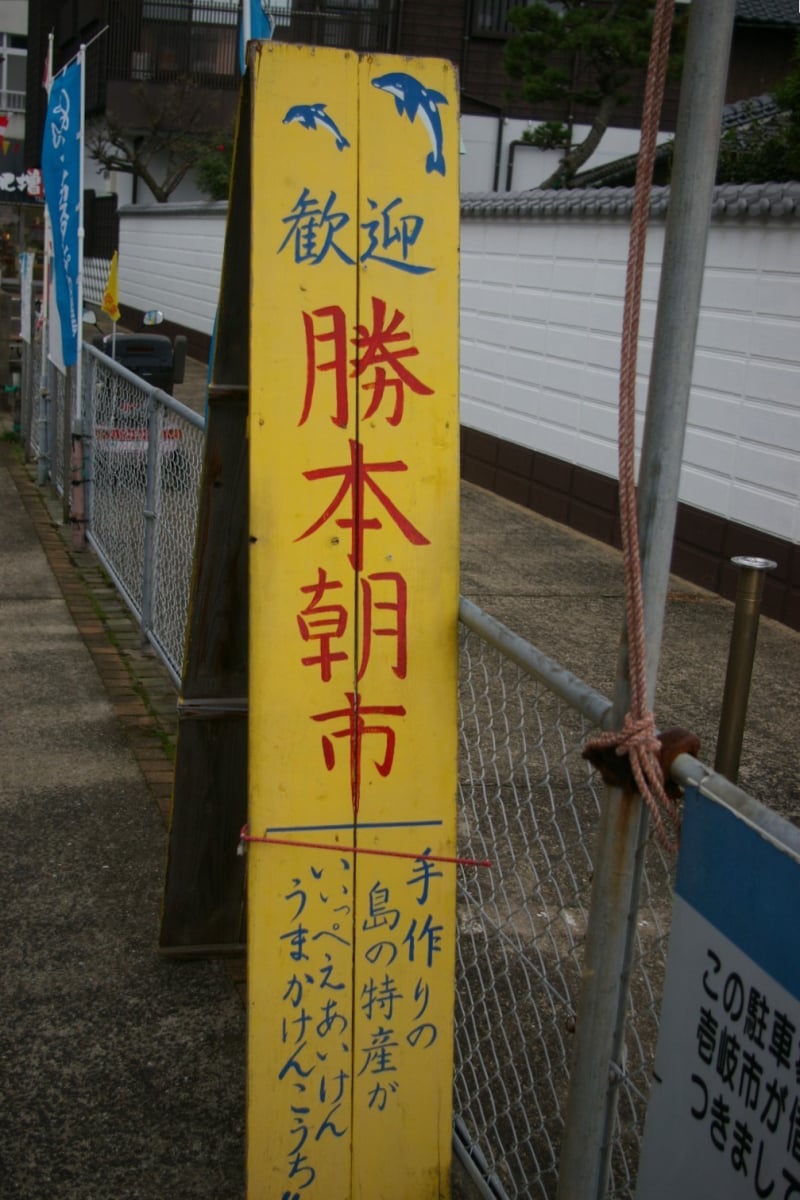 歓迎
勝本朝市
手作りの
島の特産が
いいっぺえあいけん
うまかけんこうち
この駐車
壱岐市が借
つきまして